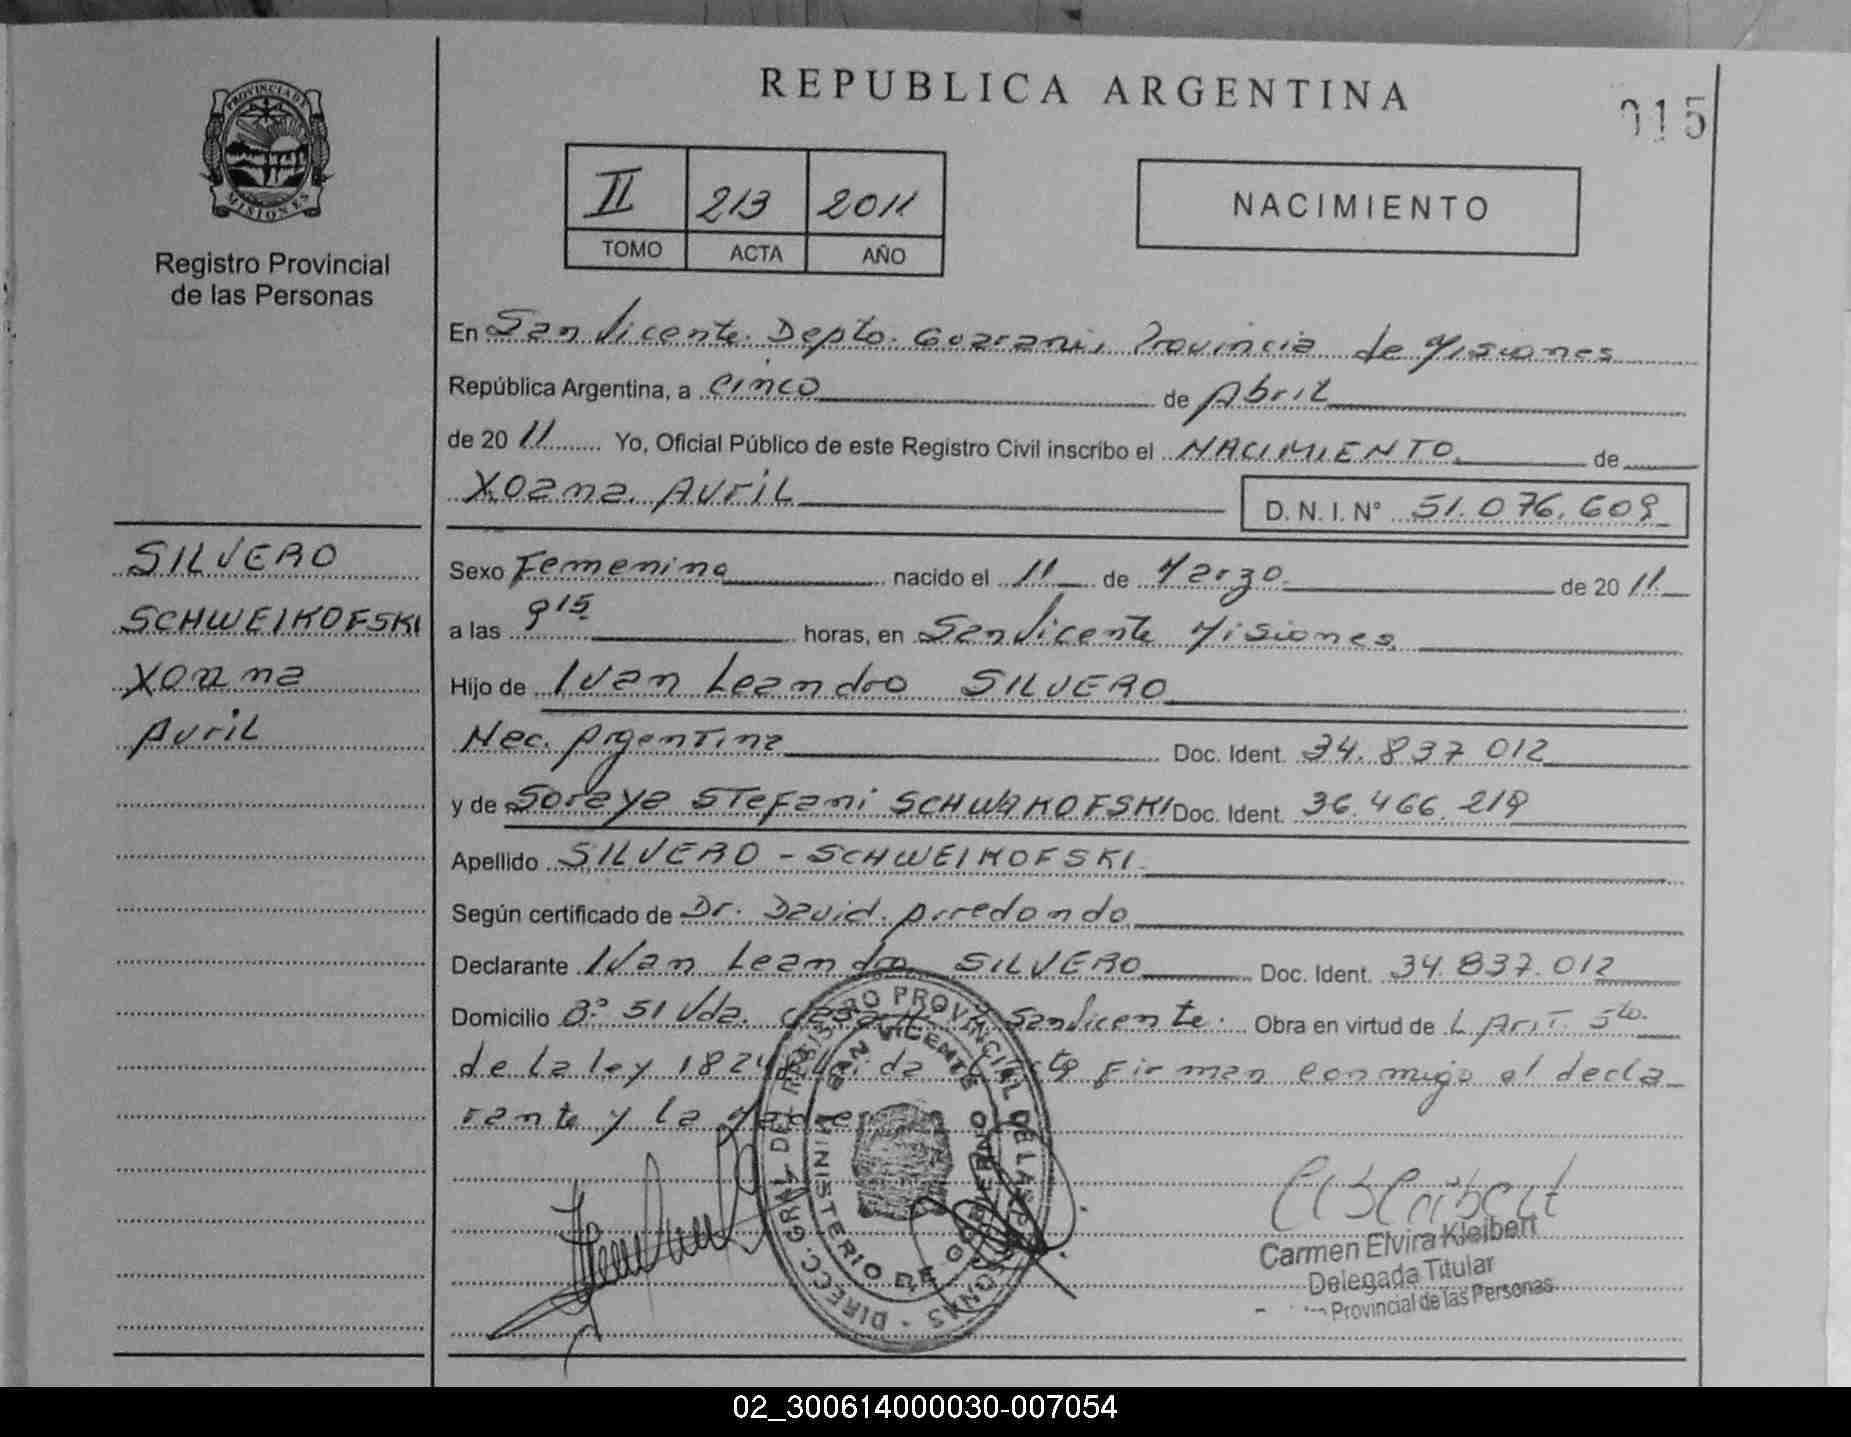 REPUBLICA ARGENTINA
015
PROVINCIA DE
MISIONES
Registro Provincial
de las Personas
II 213 2011
TOMO ACTA AÑO
NACIMIENTO
En San Vicente. Depto. Guarani, Provincia de Misiones
República Argentina, a Cinco de Abril
de 20 11 Yo, Oficial Público de este Registro Civil inscribo el NACIMIENTO de
Xoana Avril
D. N. I. N° 51.076.609
SILVERO
SCHWEIKOFSKI
Xoana
Avril
Sexo Femenino nacido el 11 de Marzo de 20 11
a las 9 15 horas, en San Vicente Misiones
Hijo de Ivan Leandro SILVERO
Nac. Argentina Doc. Ident. 34.837 012
y de Soraya Stefani Doc. Ident. 36.466.219
Apellido SILVERO - SCHWEIKOFSKI
Según certificado de Dr. David Arredondo
Declarante Ivan Leandro SILVERO Doc. Ident. 34.837.012
Domicilio B° 51 Vda. San Vicente. Obra en virtud de L. Art. 5to.
de la ley Firman conmigo el decla-
rante y la
DIRECC. GRAL. DEL REGISTRO PROVINCIAL DE LAS PERSONAS
SAN VICENTE
MINISTERIO DE GOBIERNO
Carmen Elvira Kleibert
Delegada Titular
Provincial de las Personas
02_300614000030-007054